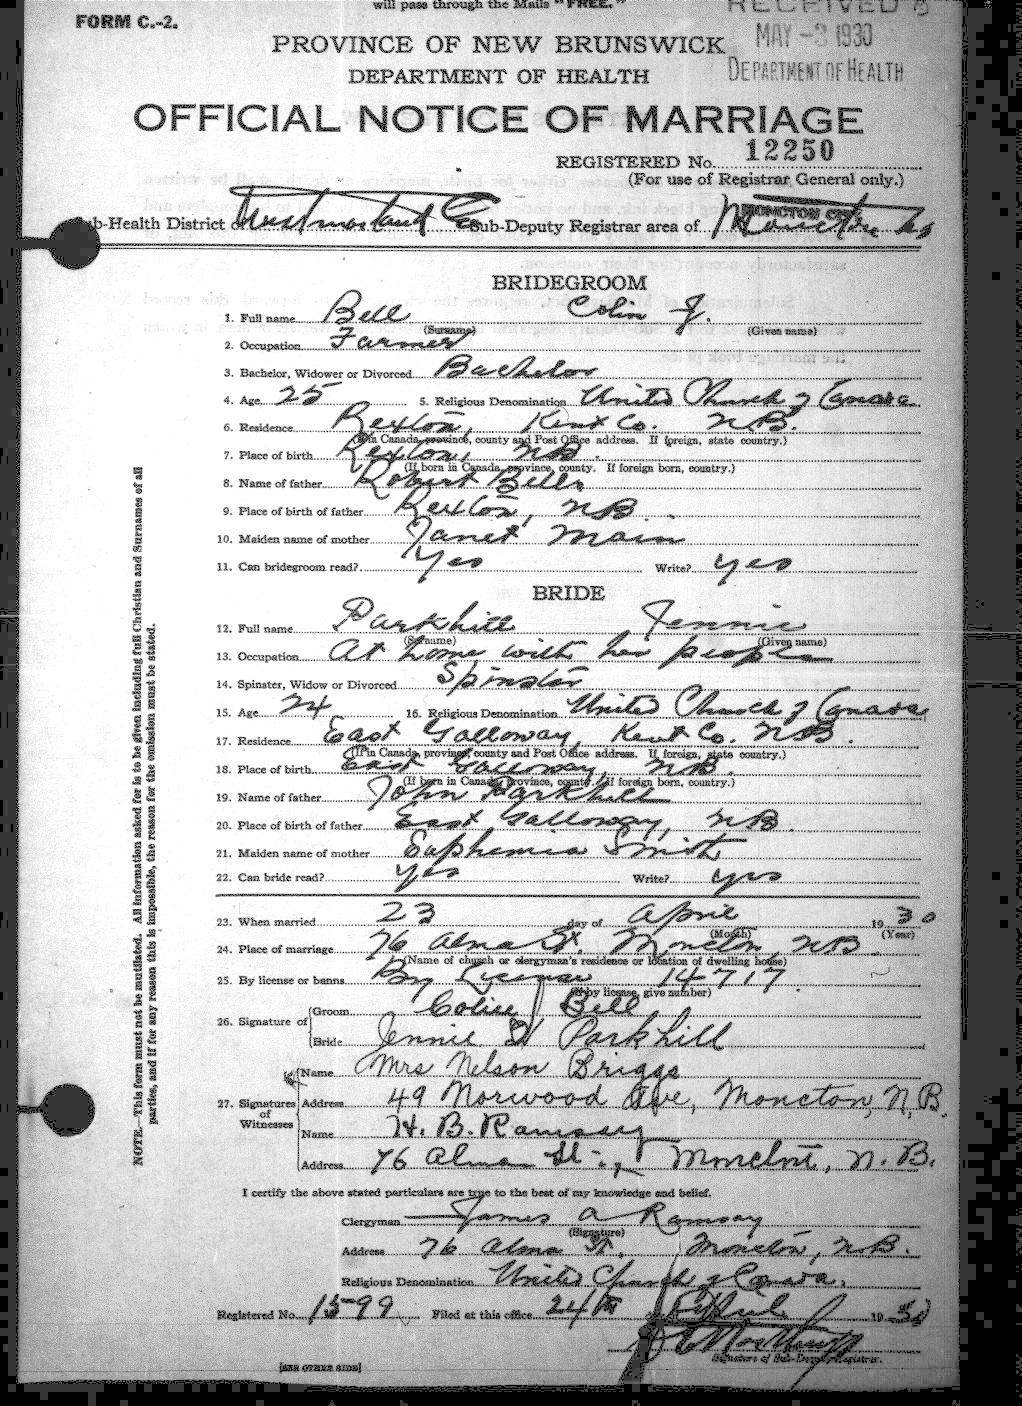 will pass through the Mails "FREE."
FORM C.-2.
RECEIVED
MAY -3 1930
DEPARTMENT OF HEALTH
PROVINCE OF NEW BRUNSWICK
DEPARTMENT OF HEALTH
OFFICIAL NOTICE OF MARRIAGE
REGISTERED No. 12250
(For use of Registrar General only.)
Sub-Health District of Westmorland Co Sub-Deputy Registrar area of MONCTON CITY Moncton
BRIDEGROOM
1. Full name Bell Colin J.
(Surname) (Given name)
2. Occupation Farmer
3. Bachelor, Widower or Divorced Bachelor
4. Age 25 5. Religious Denomination United Church of Canada
6. Residence Rexton, Kent Co. N.B.
(If in Canada, province, county and Post Office address. If foreign, state country.)
7. Place of birth Rexton, N.B.
(If born in Canada, province, county. If foreign born, country.)
8. Name of father Robert Bell
9. Place of birth of father Rexton, N.B.
10. Maiden name of mother Janet Main
11. Can bridegroom read? Yes Write? yes
BRIDE
12. Full name Parkhill Jennie
(Surname) (Given name)
13. Occupation At home with her people
14. Spinster, Widow or Divorced Spinster
15. Age 24 16. Religious Denomination United Church of Canada
17. Residence East Galloway, Kent Co. N.B.
(If in Canada, province, county and Post Office address. If foreign, state country.)
18. Place of birth East Galloway, N.B.
(If born in Canada, province, county. If foreign born, country.)
19. Name of father John Parkhill
20. Place of birth of father East Galloway, N.B.
21. Maiden name of mother Euphemia Smith
22. Can bride read? yes Write? yes
23. When married 23 day of April 1930
(Month) (Year)
24. Place of marriage 76 Alma St. Moncton, N.B.
(Name of church or clergyman's residence or location of dwelling house)
25. By license or banns By License 14717
(If by license, give number)
26. Signature of
Groom Colin J Bell
Bride Jennie Parkhill
27. Signatures of Witnesses
Name Mrs Nelson Briggs
Address 49 Norwood Ave, Moncton, N.B.
Name H. B. Ramsay
Address 76 Alma St., Moncton, N.B.
I certify the above stated particulars are true to the best of my knowledge and belief.
Clergyman James A Ramsay
(Signature)
Address 76 Alma St. Moncton, N.B.
Religious Denomination United Church of Canada.
Registered No. 1599 Filed at this office 24th of April 1930
Signature of Sub-Deputy Registrar.
[SEE OTHER SIDE]
NOTE.—This form must not be mutilated. All information asked for is to be given including full Christian and Surnames of all
parties, and if for any reason this is impossible, the reason for the omission must be stated.